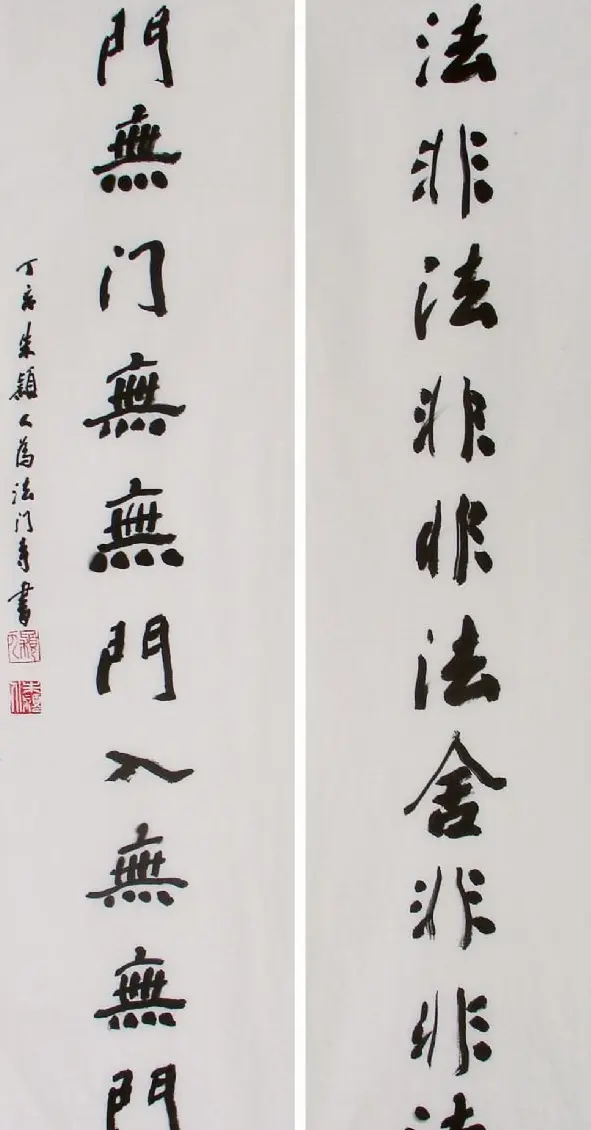 法非法非非法舍非非法
門無门無無門入無無門
丁亥朱颖人為法门寺書